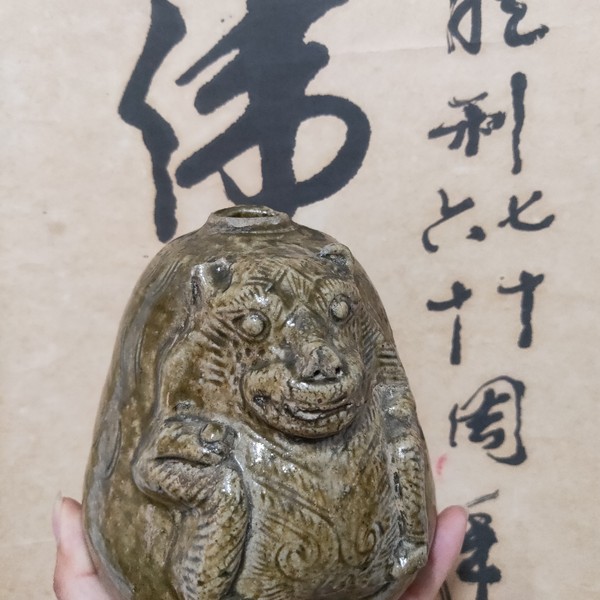 胜利
七十
六十
周年
伟